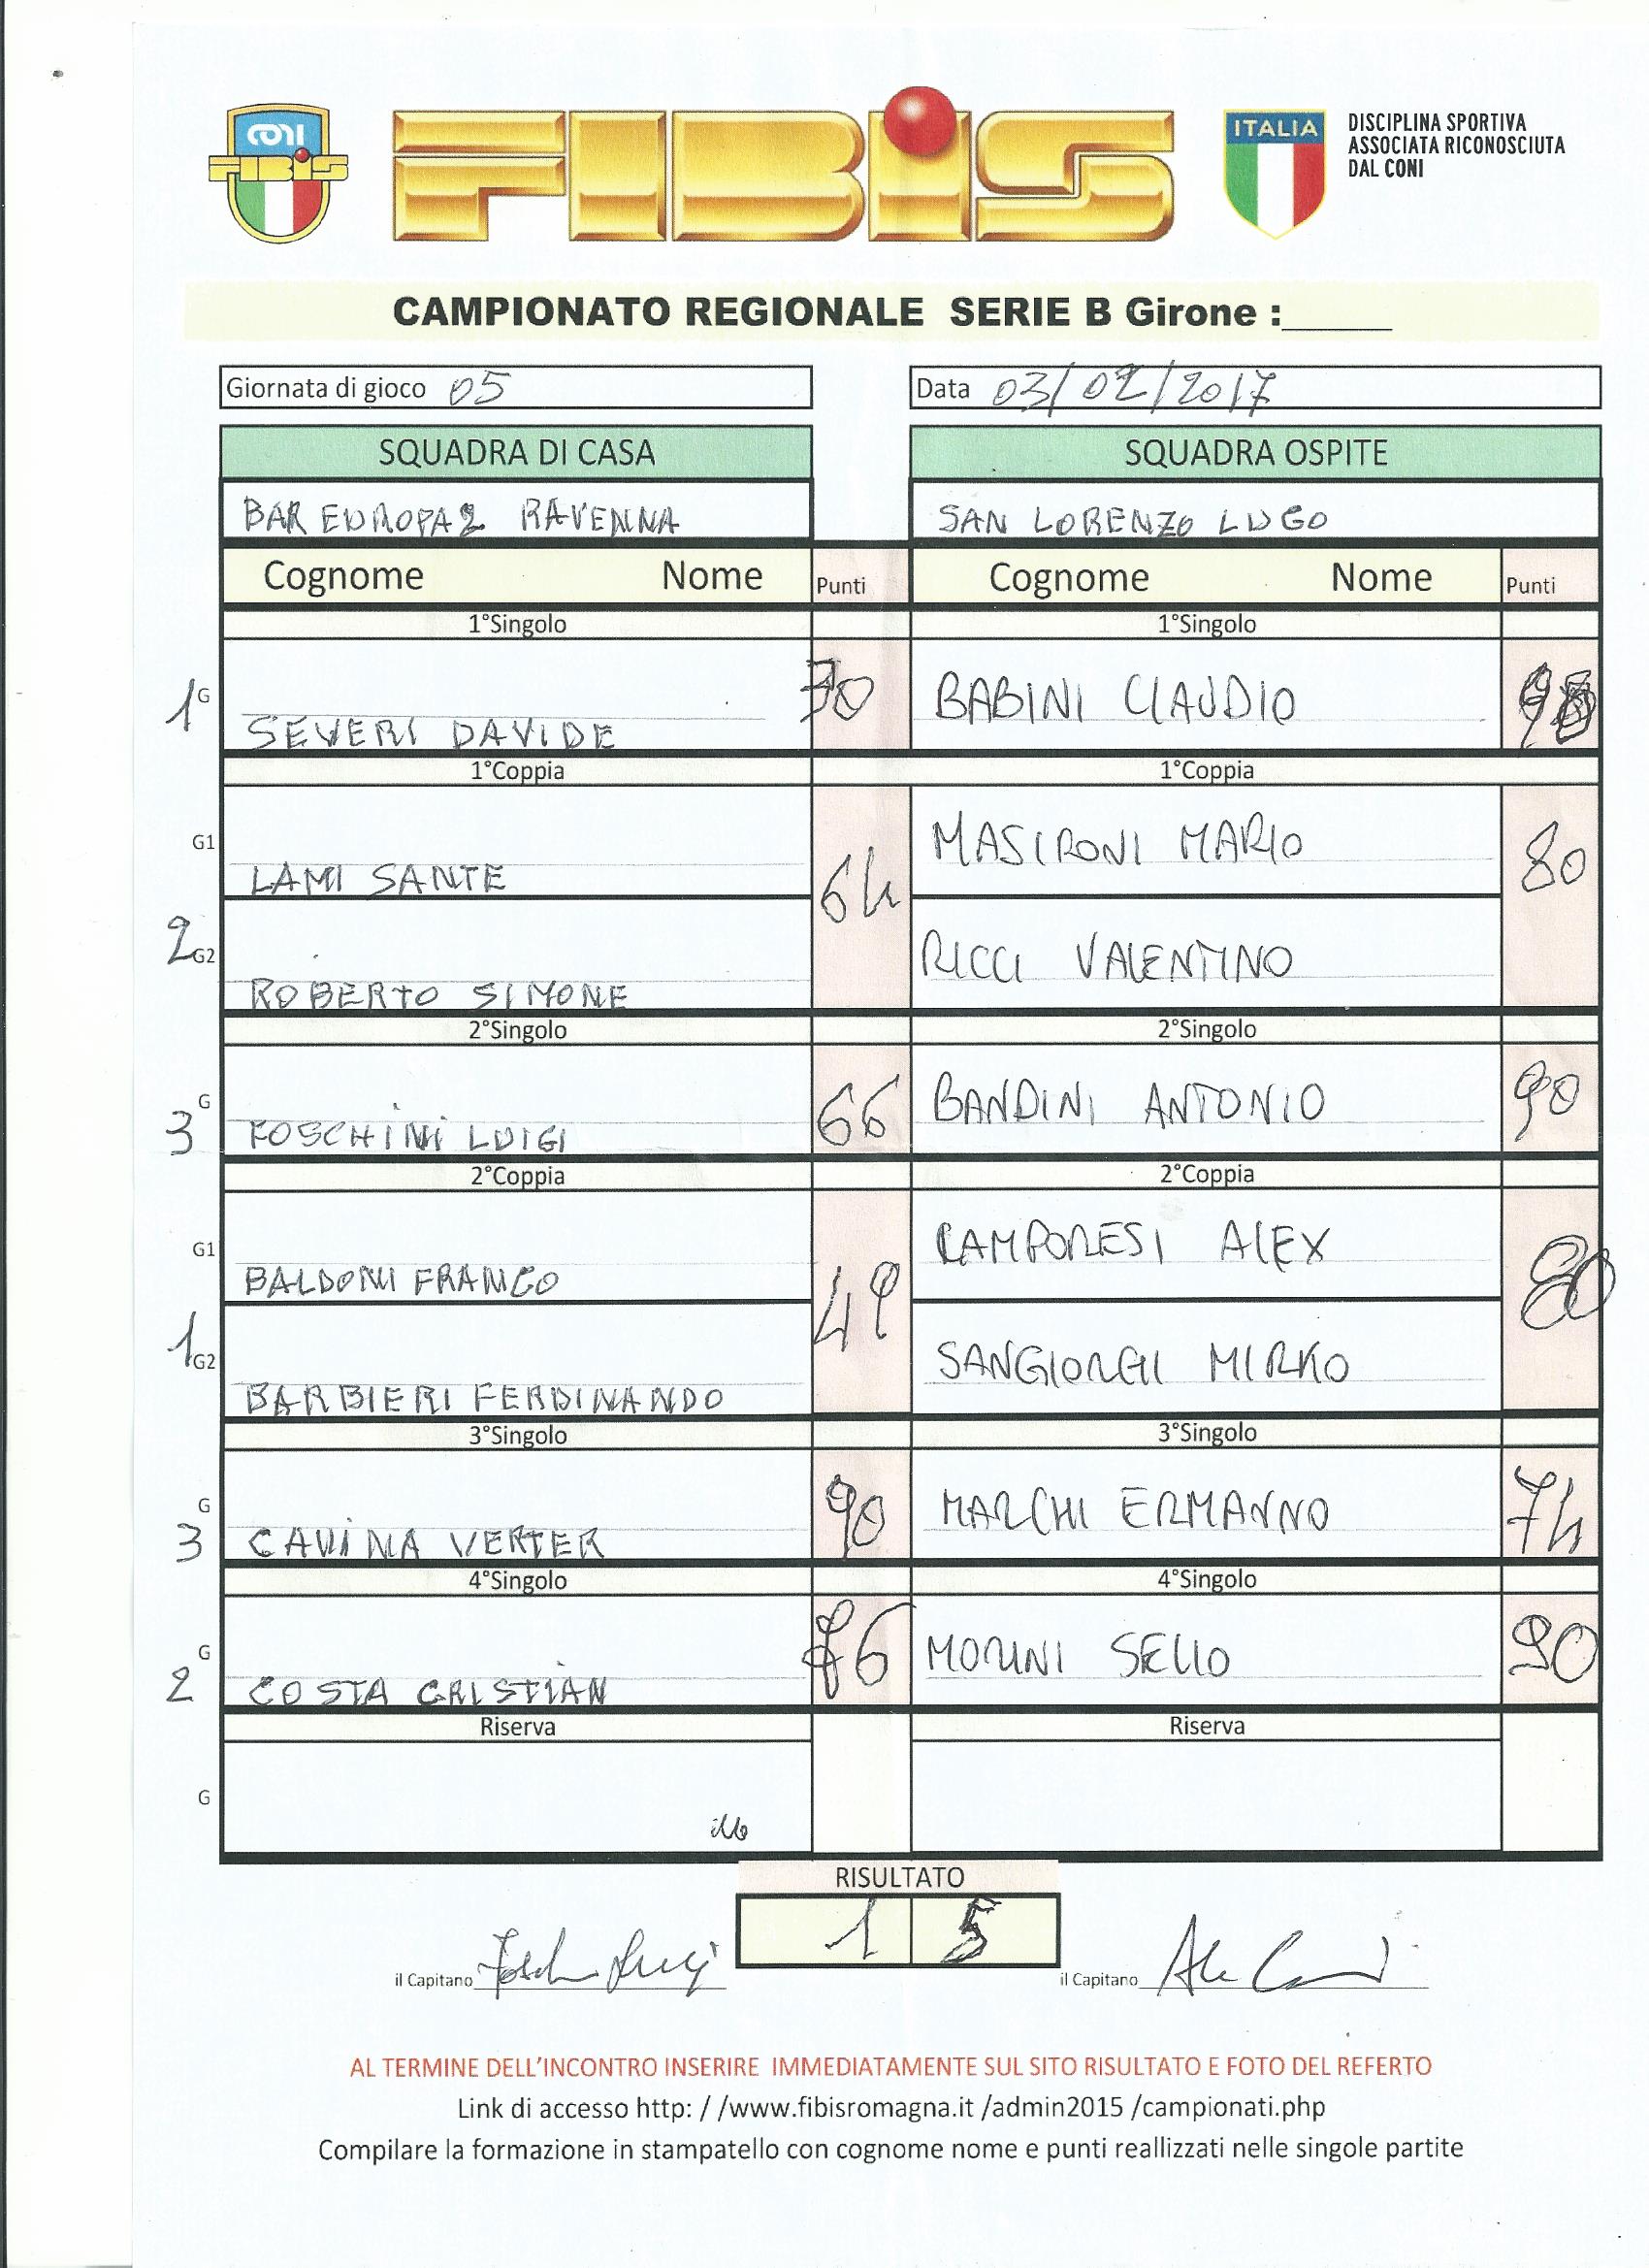 CONI
FIBiS
FIBiS
ITALIA
DISCIPLINA SPORTIVA
ASSOCIATA RICONOSCIUTA
DAL CONI
CAMPIONATO REGIONALE SERIE B Girone :______
Giornata di gioco 05
Data 03/02/2017
SQUADRA DI CASA
SQUADRA OSPITE
BAR EUROPA2 RAVENNA
SAN LORENZO LUGO
Cognome Nome Punti Cognome Nome Punti
1°Singolo 1°Singolo
1 G SEVERI DAVIDE 70 BABINI CLAUDIO
1°Coppia 1°Coppia
G1 LAMI SANTE 64 MASIRONI MARIO 80
2 G2 ROBERTO SIMONE RICCI VALENTINO
2°Singolo 2°Singolo
3 G FOSCHINI LUIGI 66 BANDINI ANTONIO 90
2°Coppia 2°Coppia
G1 BALDONI FRANCO 49 CAMPORESI ALEX 80
1 G2 BARBIERI FERDINANDO SANGIORGI MIRKO
3°Singolo 3°Singolo
3 G CAVINA VERTER 90 MARCHI ERMANNO 74
4°Singolo 4°Singolo
2 G COSTA CRISTIAN 76 MORINI SELLO 90
Riserva Riserva
G
RISULTATO
1 5
il Capitano
il Capitano
AL TERMINE DELL'INCONTRO INSERIRE IMMEDIATAMENTE SUL SITO RISULTATO E FOTO DEL REFERTO
Link di accesso http: / /www.fibisromagna.it /admin2015 /campionati.php
Compilare la formazione in stampatello con cognome nome e punti reallizzati nelle singole partite